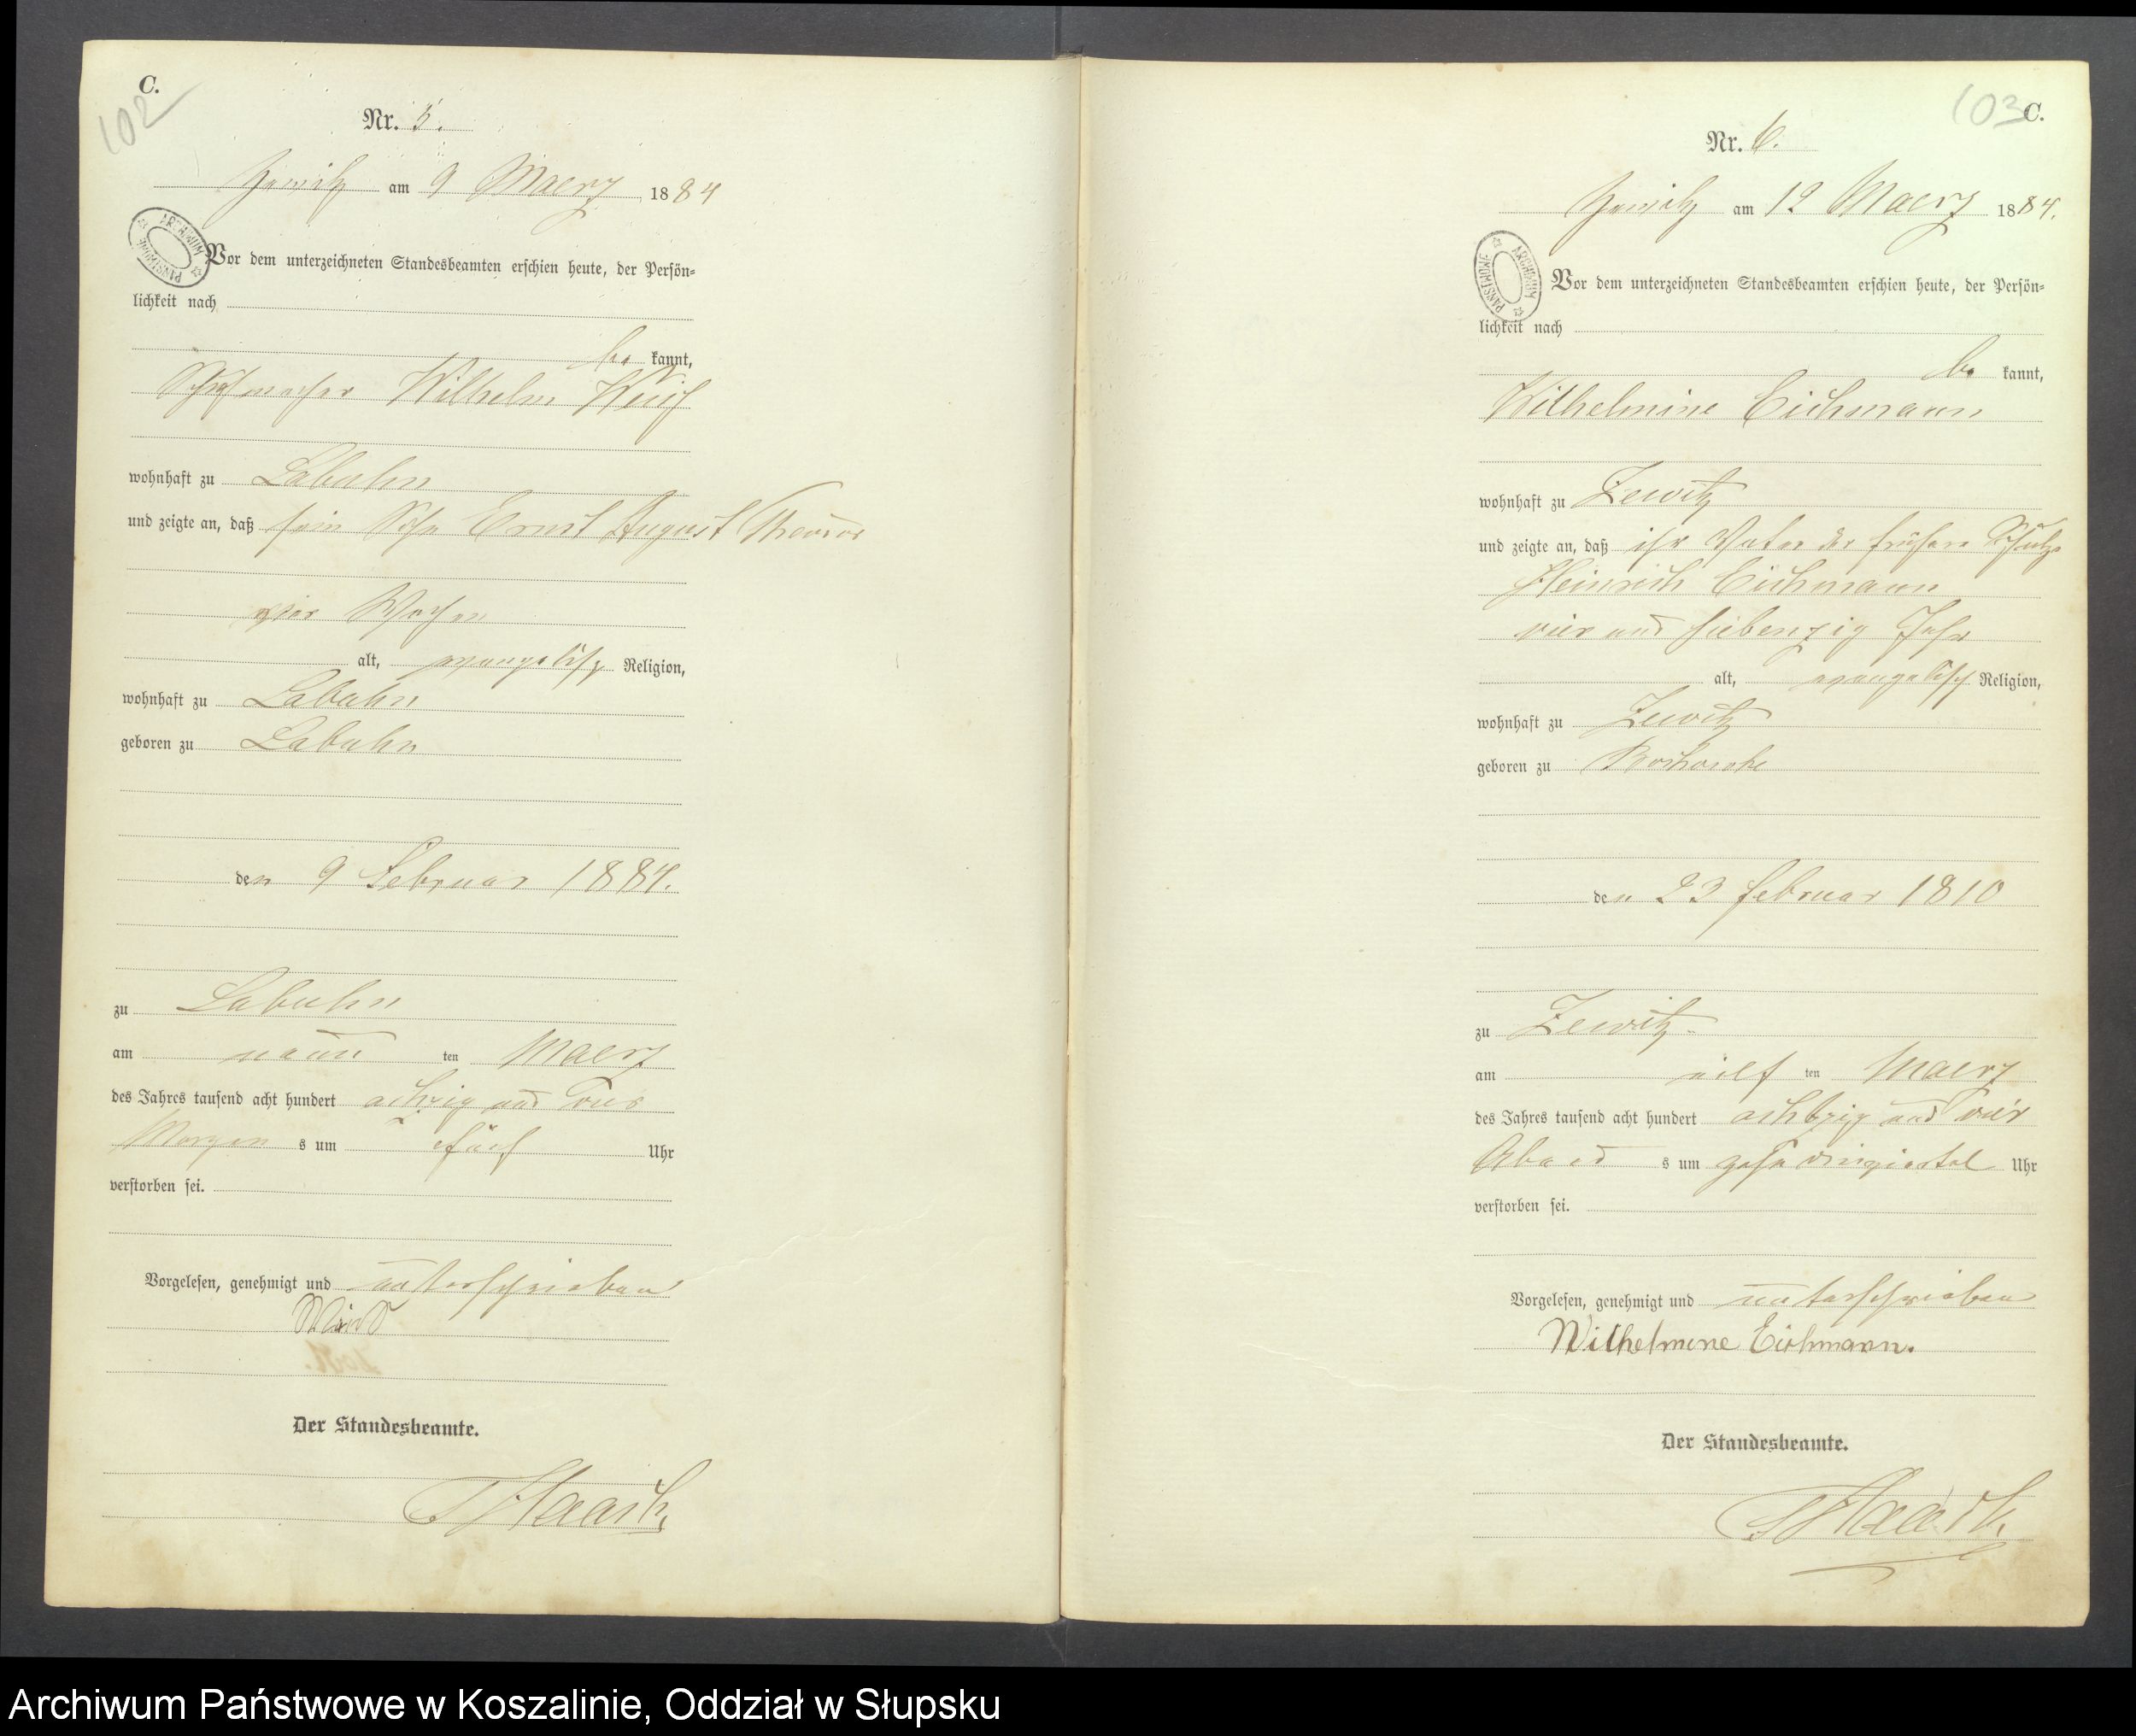 C.
102
Nr. 5.
Zewitz am 9 Maerz 1884
ARCHIWUM PAŃSTWOWE
Vor dem unterzeichneten Standesbeamten erschien heute, der Persön=
lichkeit nach
be kannt,
Wilhelm
wohnhaft zu Labuhn
und zeigte an, daß sein Sohn Ernst August
vier Wochen
alt, evangelisch Religion,
wohnhaft zu Labuhn
geboren zu Labuhn
den 9 Februar 1884.
zu Labuhn
am neun ten Maerz
des Jahres tausend acht hundert achtzig und vier
Morgen s um fünf Uhr
verstorben sei.
Vorgelesen, genehmigt und unterschrieben
Der Standesbeamte.
Haack
103
C.
Nr. 6.
Zewitz am 12 Maerz 1884.
ARCHIWUM PAŃSTWOWE
Vor dem unterzeichneten Standesbeamten erschien heute, der Persön=
lichkeit nach
be kannt,
Wilhelmine Eichmann
wohnhaft zu Zewitz
und zeigte an, daß ihr Vater der frühere Schulze
Heinrich Eichmann
vier und siebenzig Jahr
alt, evangelisch Religion,
wohnhaft zu Zewitz
geboren zu
den 23 februar 1810
zu Zewitz
am eilf ten Maerz
des Jahres tausend acht hundert achtzig und vier
Abend s um Uhr
verstorben sei.
Vorgelesen, genehmigt und unterschrieben
Wilhelmine Eichmann.
Der Standesbeamte.
Haack
Archiwum Państwowe w Koszalinie, Oddział w Słupsku